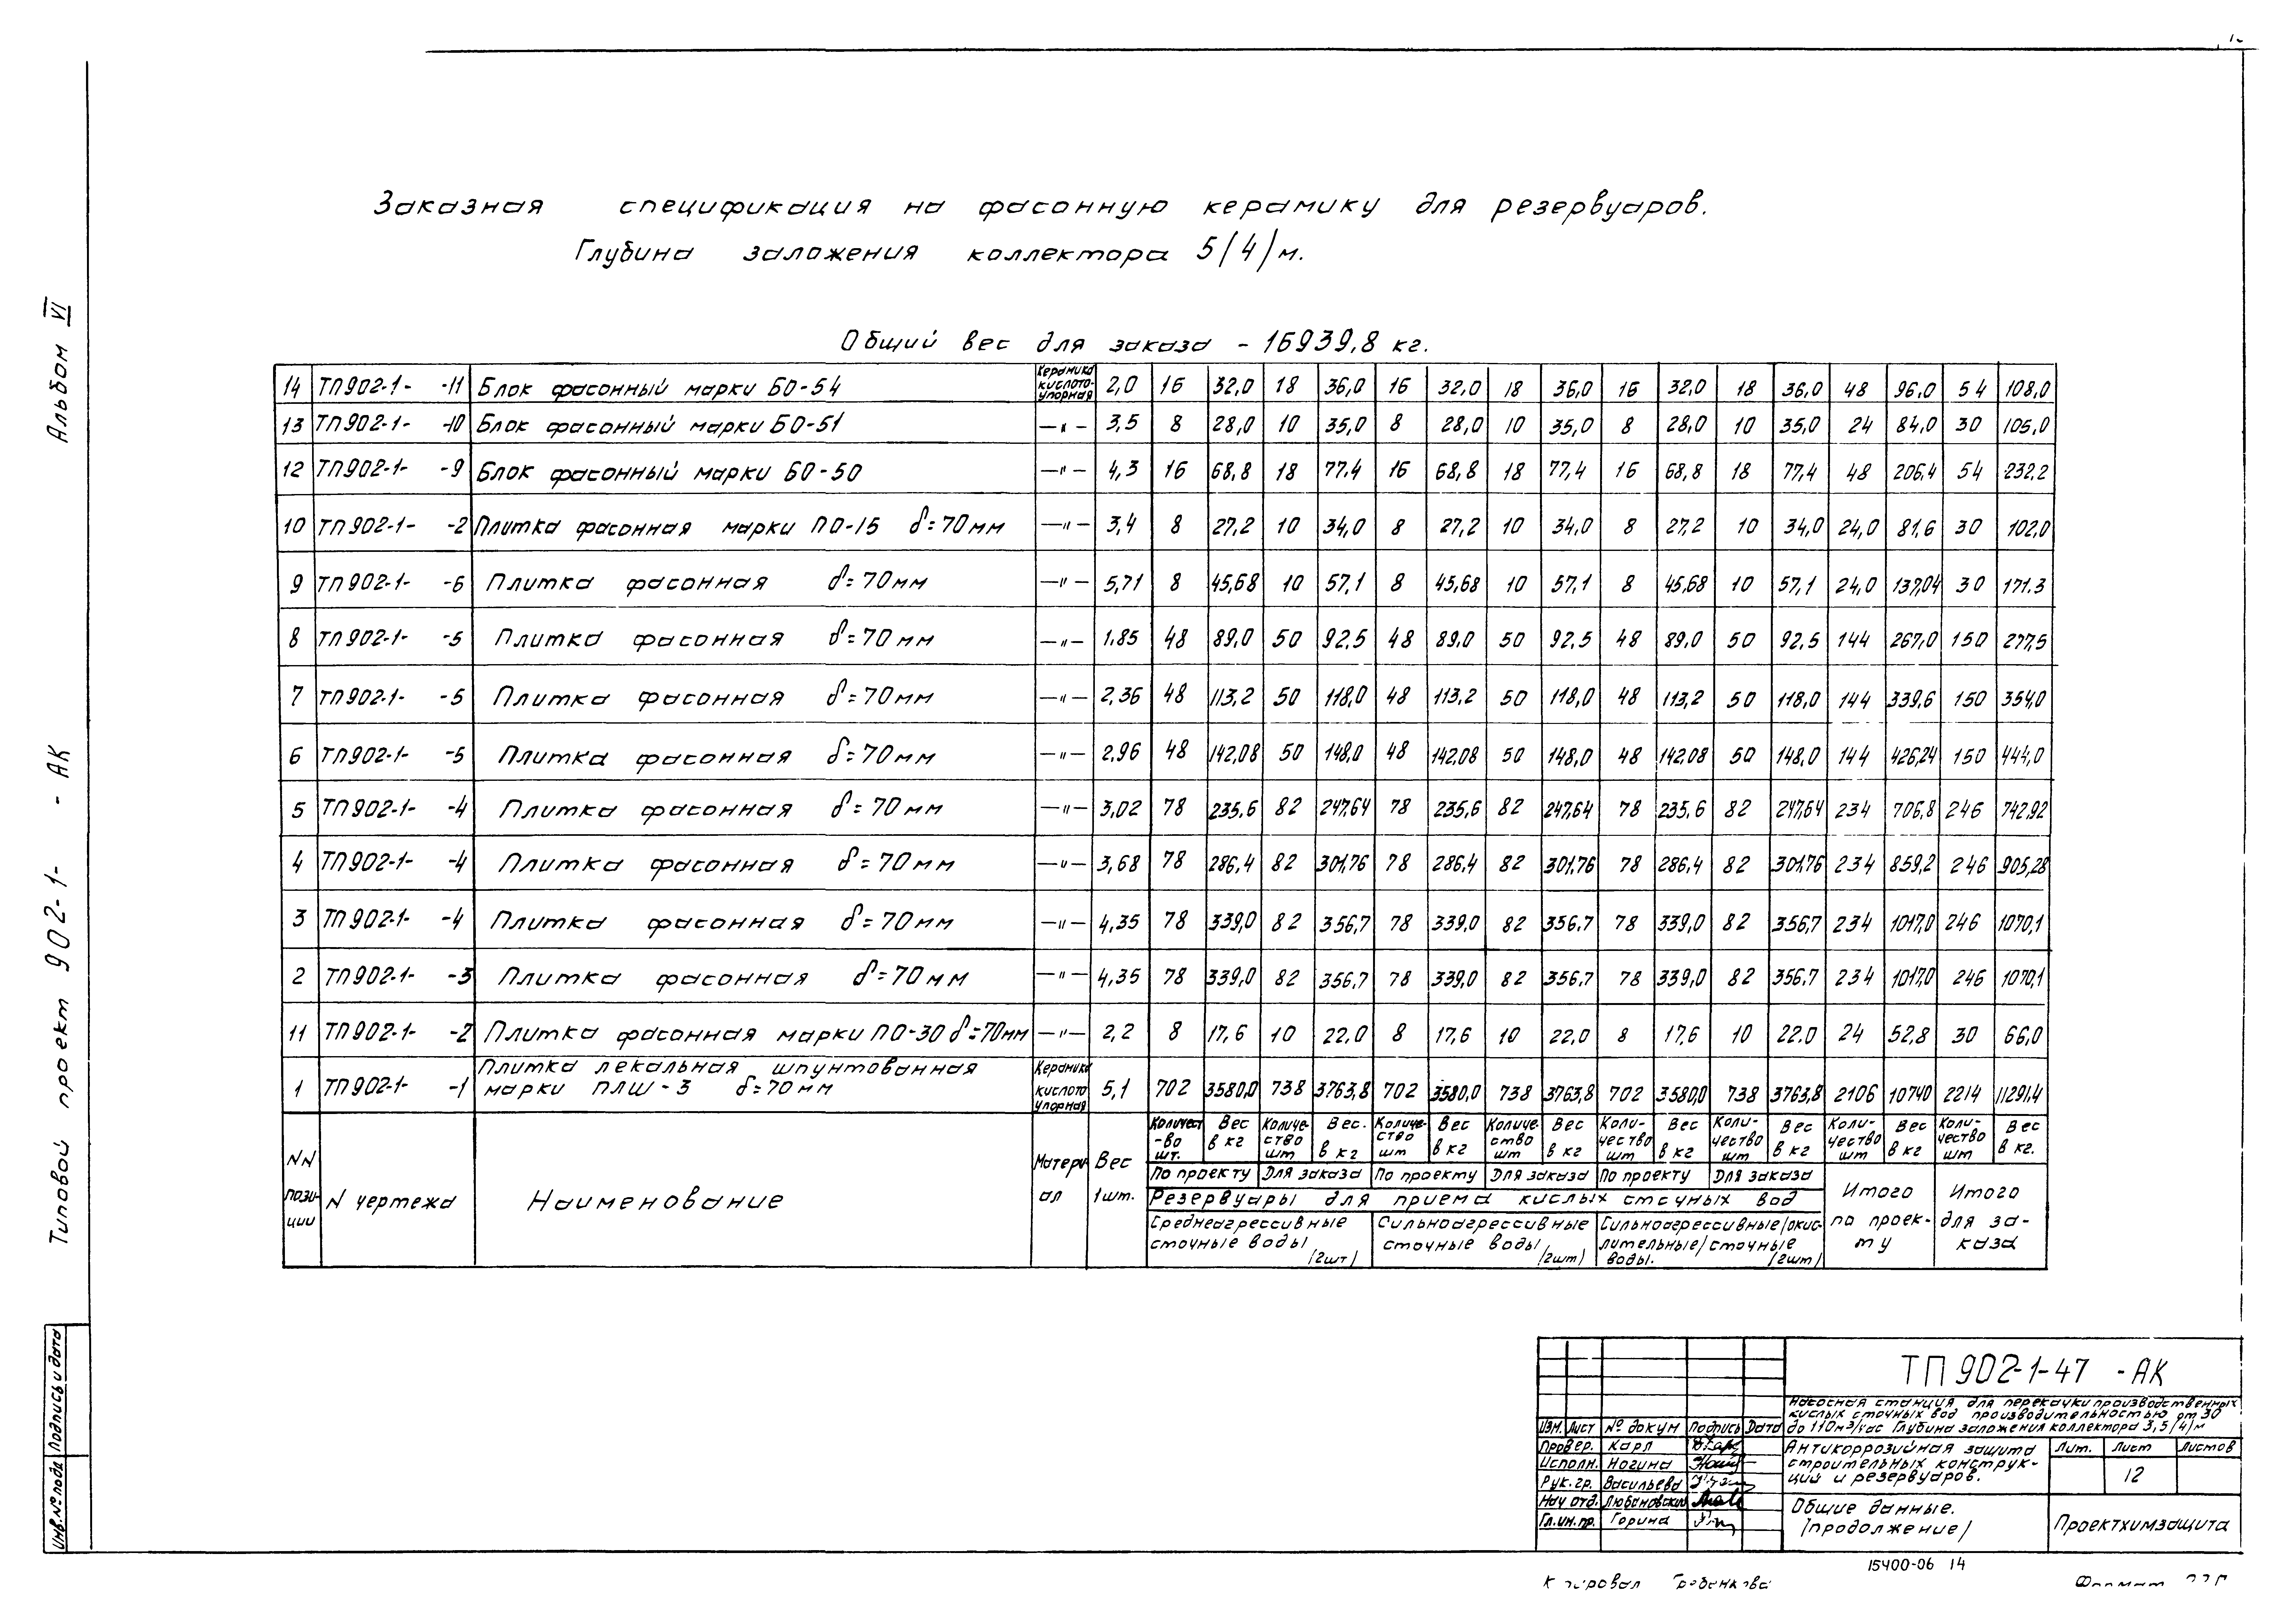 Альбом VI
Типовой проект 902-1- - АК
Инв.№ подл Подпись и дата
Заказная спецификация на фасонную керамику для резервуаров.
Глубина заложения коллектора 5/4/м.
Общий вес для заказа - 16939,8 кг.
14 ТП902-1- -11 Блок фасонный марки БО-54 Керамика кислото-упорная 2,0 16 32,0 18 36,0 16 32,0 18 36,0 16 32,0 18 36,0 48 96,0 54 108,0
13 ТП902-1- -10 Блок фасонный марки БО-51 —"— 3,5 8 28,0 10 35,0 8 28,0 10 35,0 8 28,0 10 35,0 24 84,0 30 105,0
12 ТП902-1- -9 Блок фасонный марки БО-50 —"— 4,3 16 68,8 18 77,4 16 68,8 18 77,4 16 68,8 18 77,4 48 206,4 54 232,2
10 ТП902-1- -2 Плитка фасонная марки ПО-15 δ=70мм —"— 3,4 8 27,2 10 34,0 8 27,2 10 34,0 8 27,2 10 34,0 24,0 81,6 30 102,0
9 ТП902-1- -6 Плитка фасонная δ=70мм —"— 5,71 8 45,68 10 57,1 8 45,68 10 57,1 8 45,68 10 57,1 24,0 137,04 30 171.3
8 ТП902-1- -5 Плитка фасонная δ=70мм —"— 1.85 48 89,0 50 92,5 48 89,0 50 92,5 48 89,0 50 92,5 144 267,0 150 277,5
7 ТП902-1- -5 Плитка фасонная δ=70мм —"— 2,36 48 113,2 50 118,0 48 113,2 50 118,0 48 113,2 50 118,0 144 339,6 150 354,0
6 ТП902-1- -5 Плитка фасонная δ=70мм —"— 2,96 48 142,08 50 148,0 48 142,08 50 148,0 48 142,08 50 148,0 144 426,24 150 444,0
5 ТП902-1- -4 Плитка фасонная δ=70мм —"— 3,02 78 235,6 82 247,64 78 235,6 82 247,64 78 235,6 82 247,64 234 706,8 246 742,92
4 ТП902-1- -4 Плитка фасонная δ=70мм —"— 3,68 78 286,4 82 301,76 78 286,4 82 301,76 78 286,4 82 301,76 234 859,2 246 905,28
3 ТП902-1- -4 Плитка фасонная δ=70мм —"— 4,35 78 339,0 82 356,7 78 339,0 82 356,7 78 339,0 82 356,7 234 1017,0 246 1070,1
2 ТП902-1- -3 Плитка фасонная δ=70мм —"— 4,35 78 339,0 82 356,7 78 339,0 82 356,7 78 339,0 82 356,7 234 1017,0 246 1070,1
11 ТП902-1- -2 Плитка фасонная марки ПО-30 δ=70мм —"— 2,2 8 17,6 10 22,0 8 17,6 10 22,0 8 17,6 10 22,0 24 52,8 30 66,0
Плитка лекальная шпунтованная
1 ТП902-1- -1 марки ПЛШ-3 δ=70мм Керамика кислото упорная 5,1 702 3580,0 738 3763,8 702 3580,0 738 3763,8 702 3580,0 738 3763,8 2106 10740 2214 11291,4
NN позиции N чертежа Наименование Материал Вес 1шт.
Количест-во шт. Вес в кг Количество шт Вес. в кг Количество шт Вес в кг Количество шт Вес в кг Коли-чество шт Вес в кг Коли-чество шт Вес в кг Коли-чество шт Вес в кг Коли-чество шт Вес в кг.
По проекту Для заказа По проекту Для заказа По проекту Для заказа
Резервуары для приема кислых сточных вод
Среднеагрессивные сточные воды /2шт/
Сильноагрессивные сточные воды /2шт/
Сильноагрессивные/окислительные/сточные воды. /2шт/
Итого по проек-ту
Итого для за-каза
ТП 902-1-47 -АК
Насосная станция для перекачки производственных
кислых сточных вод производительностью от 30
до 110м³/час Глубина заложения коллектора 3,5/4/м
Изм. Лист № докум Подпись Дата
Провер. Карл
Исполн. Ногина
Рук.гр. Васильева
Нач отд. Любановский
Гл.ин.пр. Горина
Антикоррозийная защита
строительных конструк-
ций и резервуаров.
Лит. Лист Листов
12
Общие данные.
/продолжение/
Проектхимзащита
15400-06 14